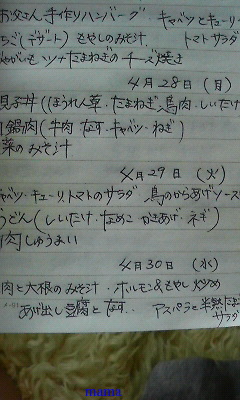 お父さん手作りハンバーグ キャベツとキューリ
ちご(デザート) もやしのみそ汁 トマトサラダ
ツナたまねぎのチーズ焼き
4月28日(月)
丼(ほうれん草・たまねぎ 鳥肉・しいたけ
鍋肉(牛肉 なす・キャベツ・ねぎ)
菜のみそ汁
4月29日(火)
ャベツ・キューリ、トマトのサラダ 鳥のからあげソース
うどん(しいたけ・なめこ かきあげ・ネギ)
肉しゅうまい
4月30日(水)
肉と大根のみそ汁・ホルモン&もやし炒め
あげ出し豆腐となす・・ アスパラと半熟たま
サラダ